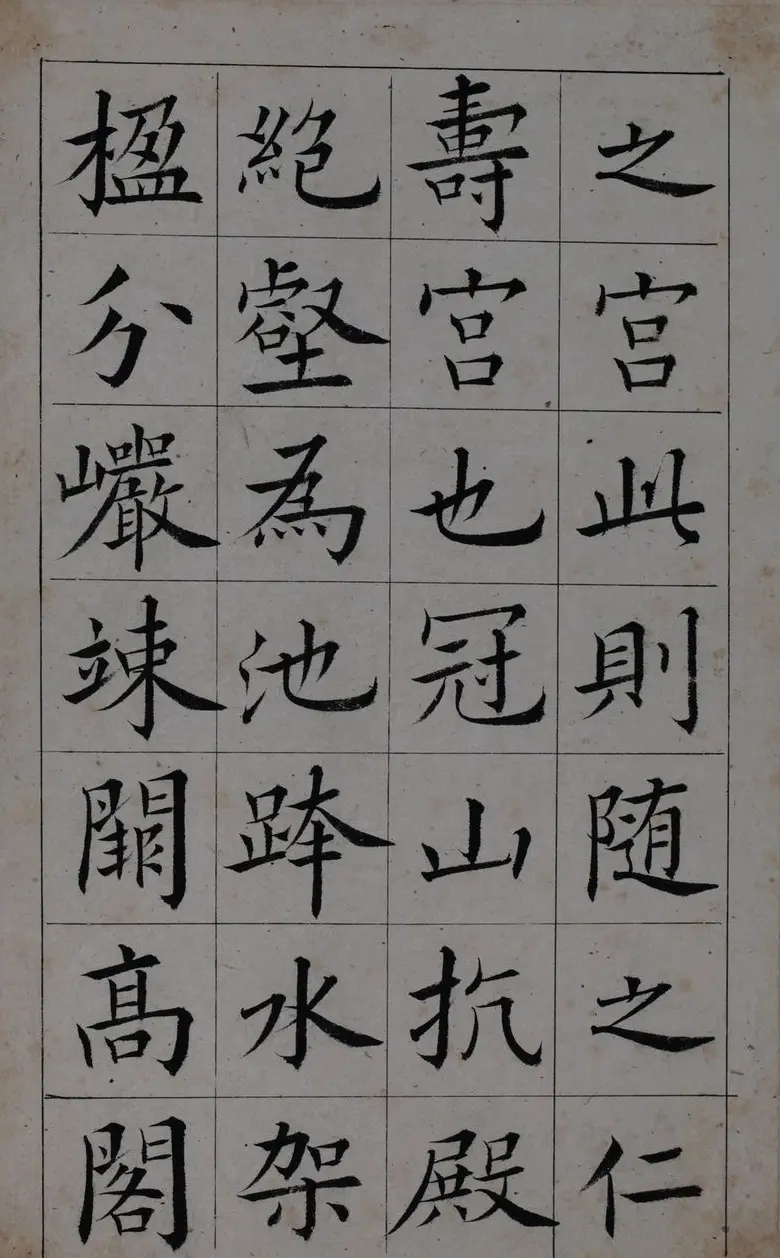 之宫此則随之仁
壽宫也冠山抗殿
絶壑為池跨水架
楹分巖竦闕高閣